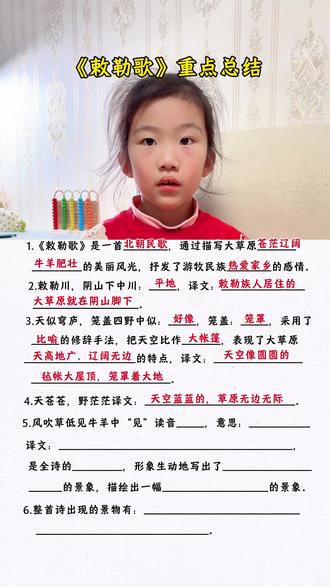 《敕勒歌》重点总结
1.《敕勒歌》是一首北朝民歌，通过描写大草原苍茫辽阔
牛羊肥壮的美丽风光，抒发了游牧民族热爱家乡的感情。
2.敕勒川，阴山下中川：平地，译文：敕勒族人居住的
大草原就在阴山脚下。
3.天似穹庐，笼盖四野中似：好像，笼盖：笼罩，采用了
比喻的修辞手法，把天空比作大帐篷，表现了大草原
天高地广、辽阔无边的特点，译文：天空像圆圆的
毡帐大屋顶，笼罩着大地。
4.天苍苍，野茫茫译文：天空蓝蓝的，草原无边无际。
5.风吹草低见牛羊中“见”读音_____，意思：__________
译文：______________________________，
是全诗的________，形象生动地写出了______________
_____的景象，描绘出一幅________________的景象。
6.整首诗出现的景物有：______________________
__________________________。